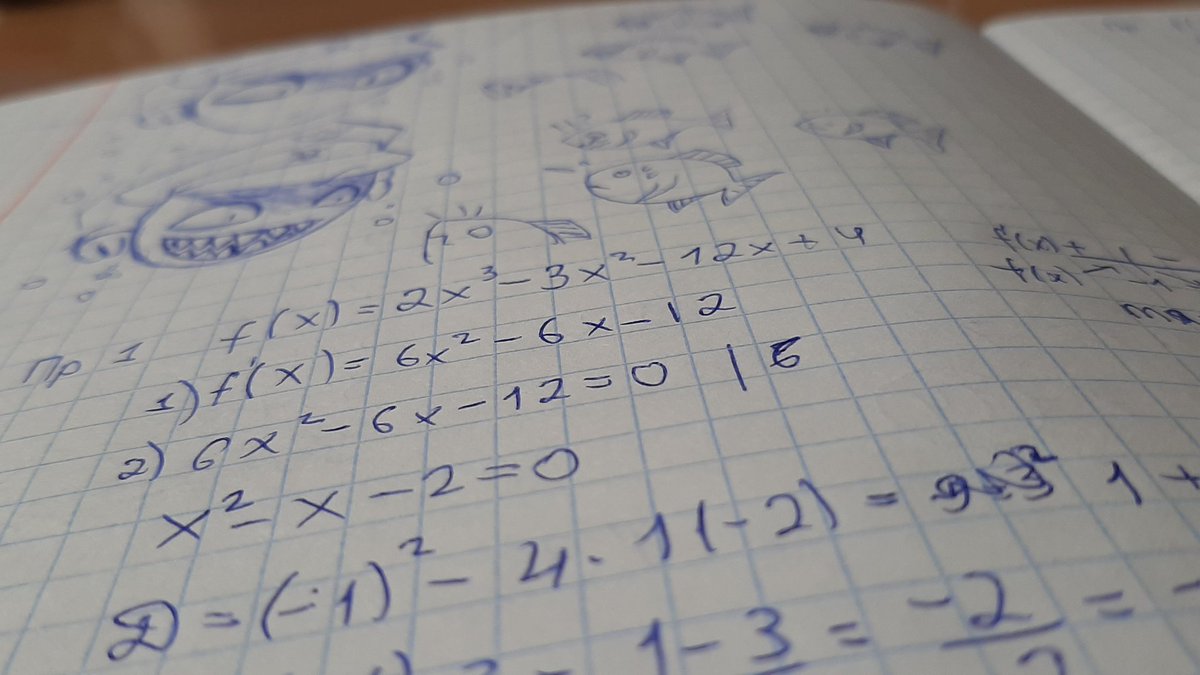 Пр 1 f(x) = 2x³ - 3x² - 12x + 4
1) f'(x) = 6x² - 6x - 12
2) 6x² - 6x - 12 = 0 | 6
x² - x - 2 = 0
D = (-1)² - 4 · 1 (-2) = 1 +
1 - 3 = -2 =
f(x) + -
f(x) - -1